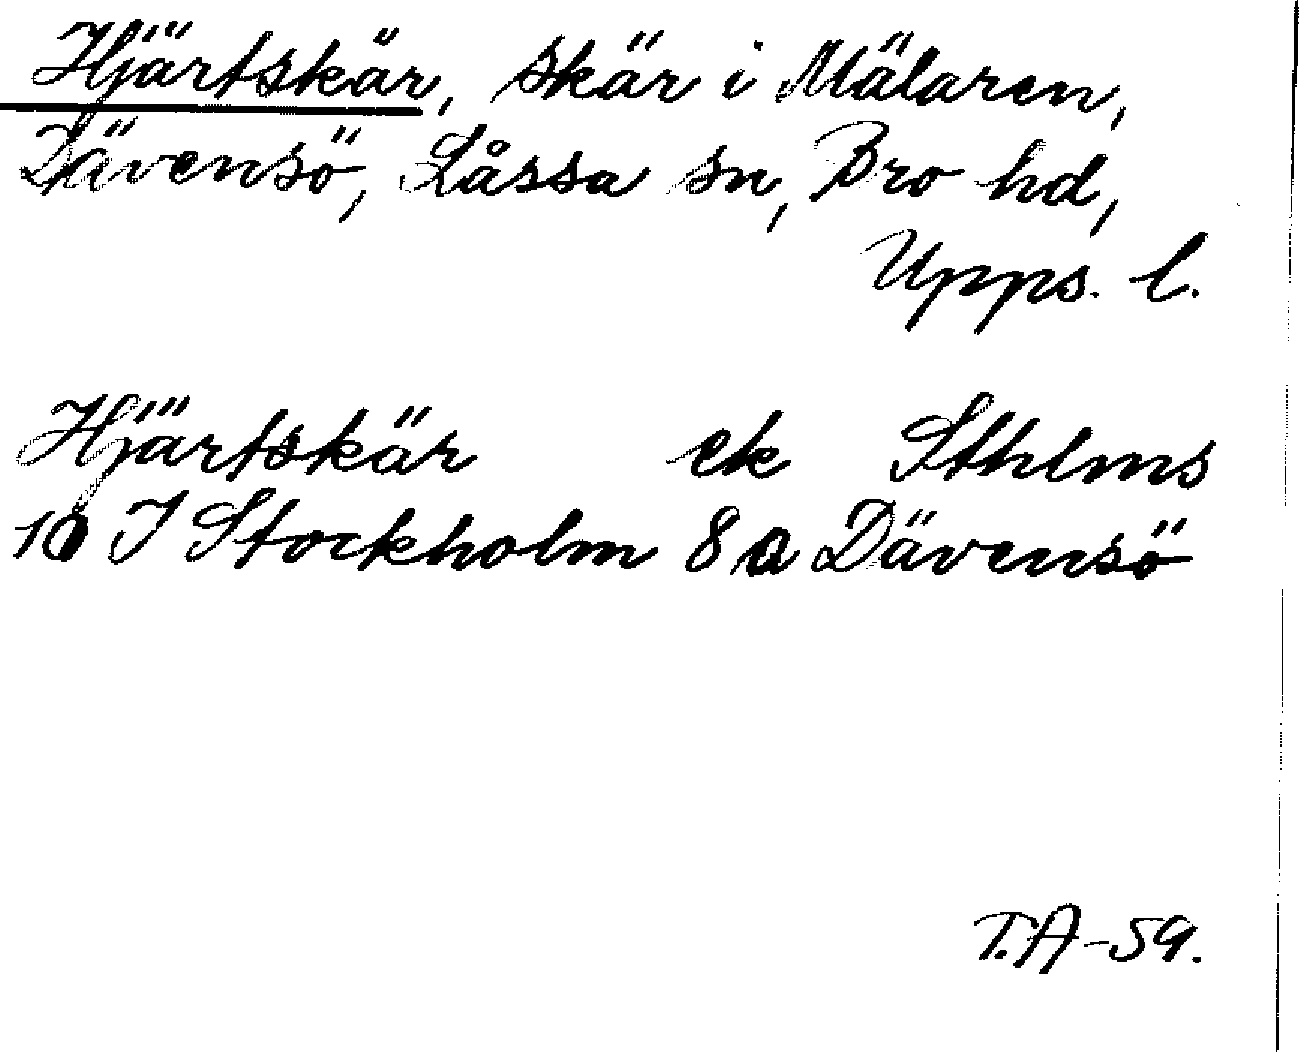 Hjärtskär, skär i Mälaren,
Dävensö, Låssa sn, Bro hd,
Upps. l.
Hjärtskär ek Sthlms
10 I Stockholm 8 a Dävensö
T.A-59.